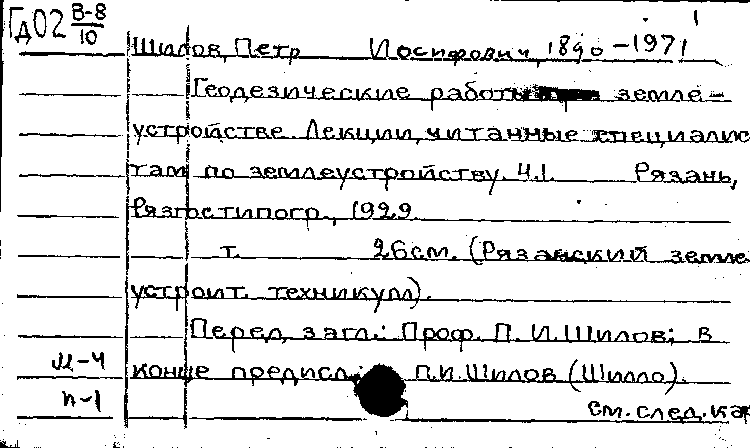 Гд02 В-8/10
1
Шилов, Петр Иосифович, 1890-1971
Геодезические работы при земле-
устройстве. Лекции, читанные специалис
там по землеустройству. Ч.1. Рязань,
Рязгостипогр., 1929.
т. 26см. (Рязанский земле
устроит. техникум).
Перед загл.: Проф. П.И.Шилов; в
м-4 конце предисл.: П.И.Шилов (Шилло).
п-1 см.след.кар